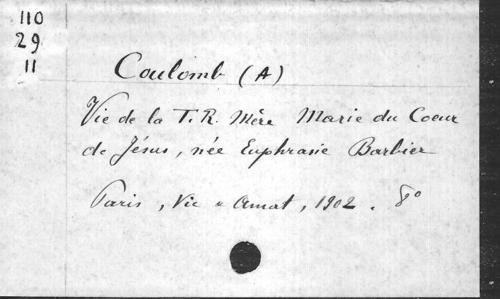 110
29
11
Coulomb (A)
Vie de la T. R. Mère Marie du Coeur
de Jésus, née Euphrasie Barbier
Paris, Vic & Amat, 1902. 8º